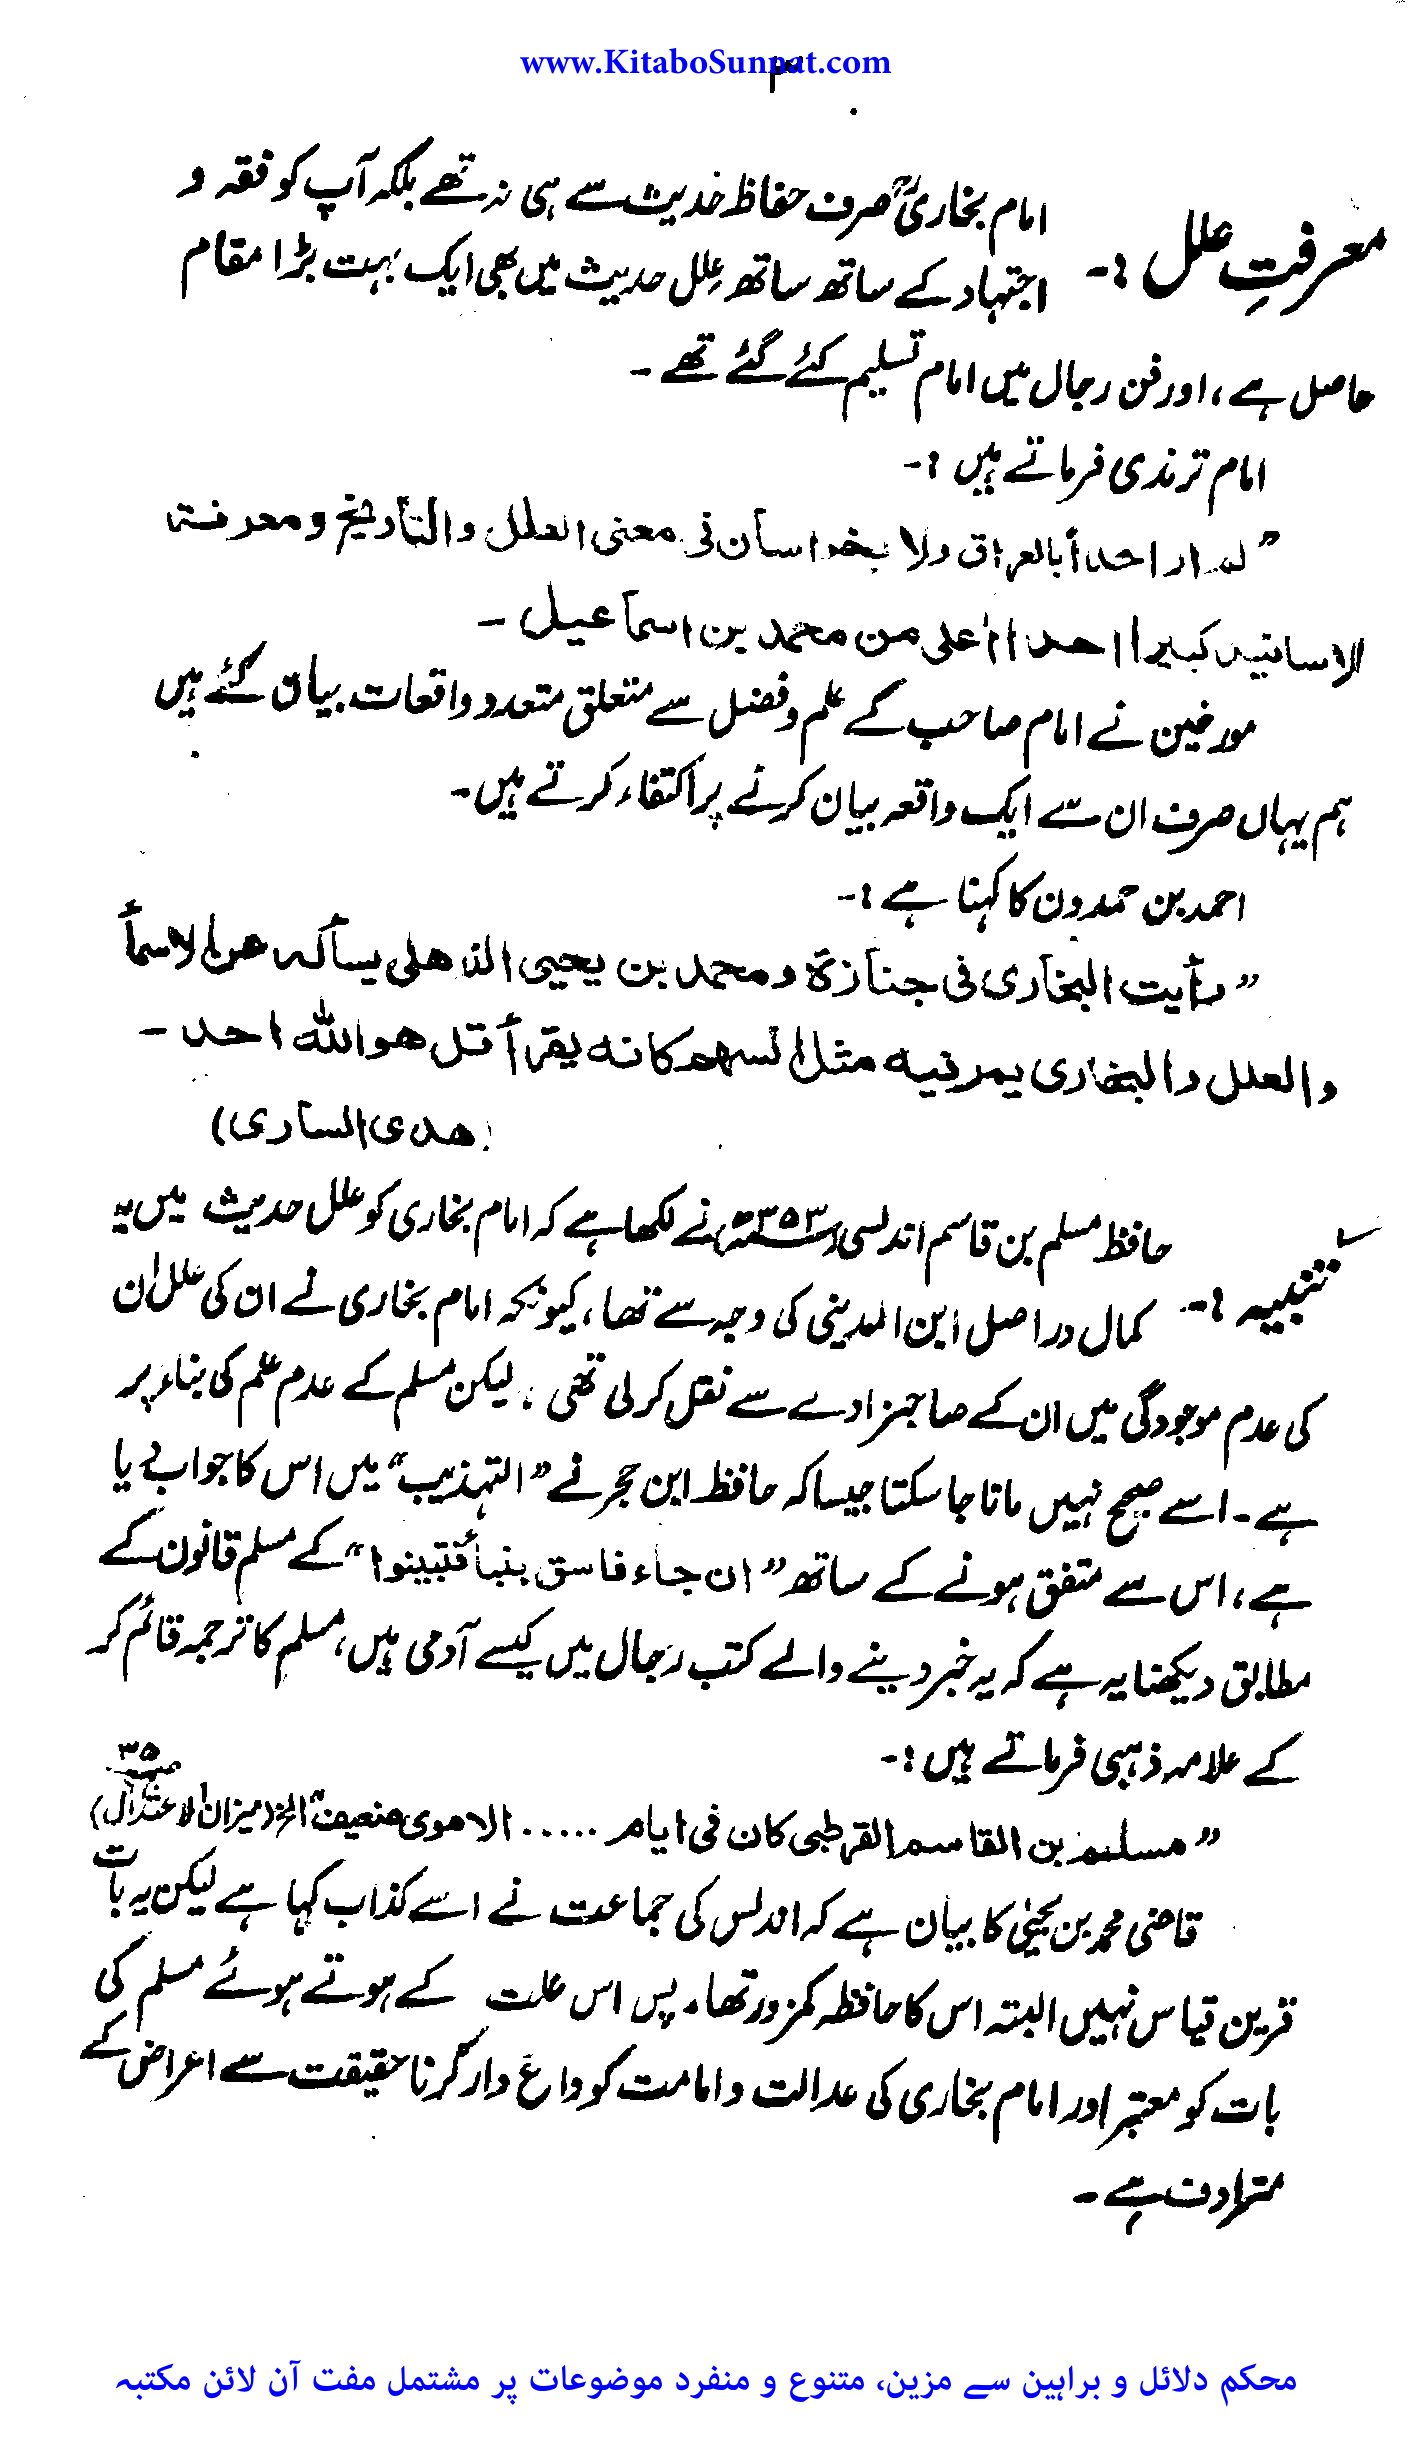 www.KitaboSunnat.com
۳
معرفتِ علل :-
امام بخاریؒ صرف حفاظ حدیث سے ہی نہ تھے بلکہ آپ کو فقہ و
اجتہاد کے ساتھ ساتھ عِلل حدیث میں بھی ایک بہت بڑا مقام
حاصل ہے، اور فن رجال میں امام تسلیم کئے گئے تھے ۔
امام ترمذی فرماتے ہیں :-
" لم ار احداً بالعراق ولا بخراسان فی معنی العلل والتاریخ و معرفۃ
الاسانید کبیرا احدا اعلی من محمد بن اسماعیل ۔
مورخین نے امام صاحب کے علم و فضل سے متعلق متعدد واقعات بیان کئے ہیں
ہم یہاں صرف ان سے ایک واقعہ بیان کرنے پر اکتفاء کرتے ہیں۔
احمد بن حمدون کا کہنا ہے :-
" رأیت البخاری فی جنازۃ و محمد بن یحیی الذھلی یسألہ عن الاسمأ
والعلل والبخاری یمر فیہ مثل السھم کانہ یقرأ قل ھو اللہ احد ۔
(ھدی الساری)
تنبیہ :-
حافظ مسلم بن قاسم اندلسی ۳۵۳ نے لکھا ہے کہ امام بخاری کو علل حدیث میں یہ
کمال دراصل ابن المدینی کی وجہ سے تھا، کیونکہ امام بخاری نے ان کی علل ان
کی عدم موجودگی میں ان کے صاحبزادے سے نقل کر لی تھی ، لیکن مسلم کے عدم علم کی بناء پر
ہے ۔ اسے صحیح نہیں مانا جا سکتا جیسا کہ حافظ ابن حجر نے " التہذیب" میں اس کا جواب دیا
ہے، اس سے متفق ہونے کے ساتھ " ان جاء فاسق بنبأ فتبینوا " کے مسلم قانون کے
مطابق دیکھنا یہ ہے کہ یہ خبر دینے والے کتب رجال میں کیسے آدمی ہیں، مسلم کا ترجمہ قائم کر
کے علامہ ذہبی فرماتے ہیں :-
" مسلم بن القاسم القرطبی کان فی ایام ..... الاموی ضعیف" الخ (میزان الاعتدال)
قاضی محمد بن یحییٰ کا بیان ہے کہ اندلس کی جماعت نے اسے کذاب کہا ہے لیکن یہ بات
قرین قیاس نہیں البتہ اس کا حافظہ کمزور تھا۔ پس اس علت کے ہوتے ہوئے مسلم کی
بات کو معتبر اور امام بخاری کی عدالت و امامت کو داغ دار کرنا حقیقت سے اعراض کے
مترادف ہے ۔
محکم دلائل و براہین سے مزین، متنوع و منفرد موضوعات پر مشتمل مفت آن لائن مکتبہ